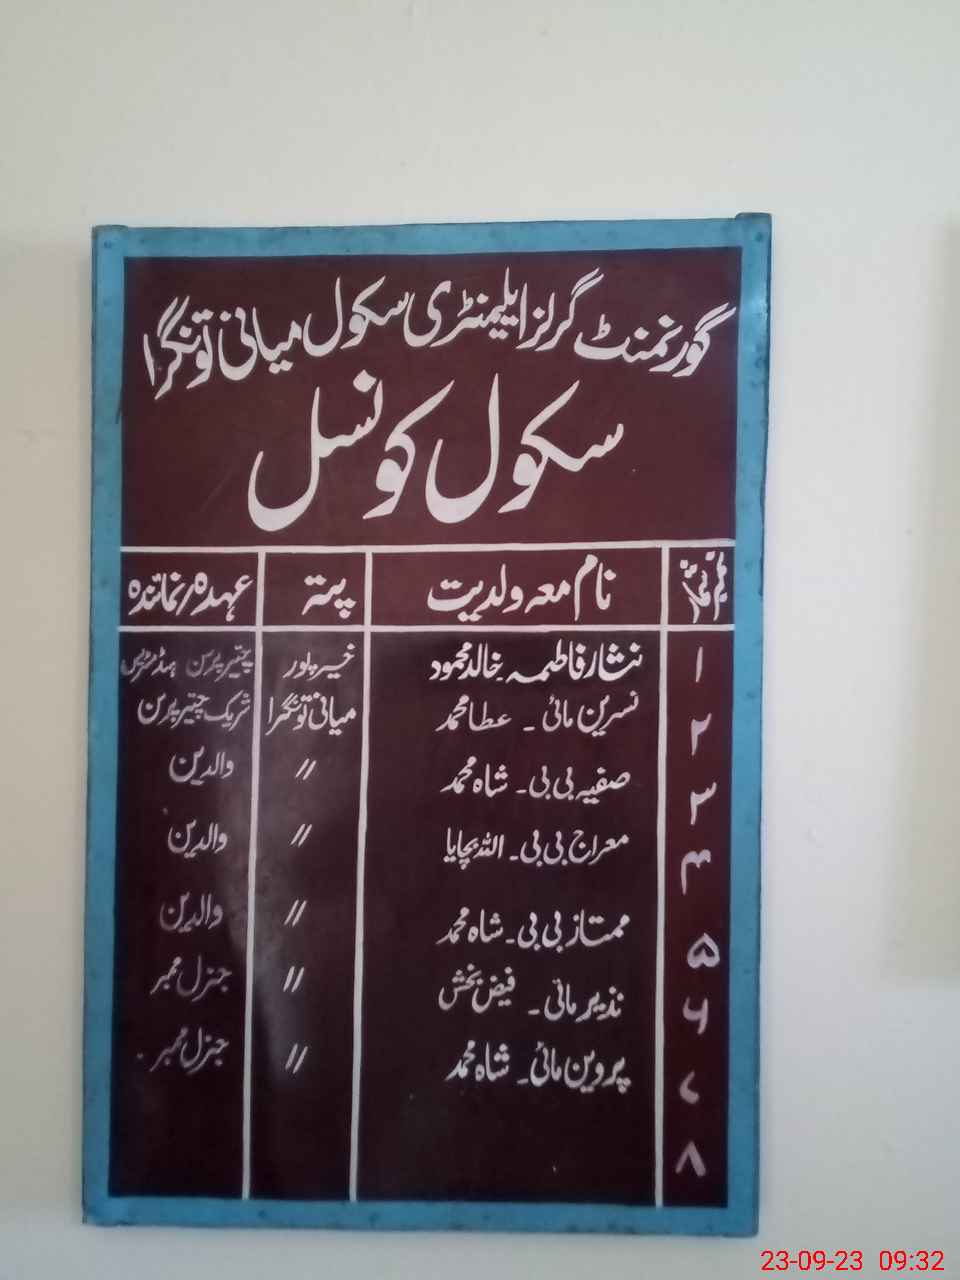 گورنمنٹ گرلز ایلیمنٹری سکول میانی تونگرا
سکول کونسل
نمبر شمار نام معہ ولدیت پتہ عہدہ/نمائندہ
۱ نثار فاطمہ۔ خالد محمود خیر پور چئیر پرسن ہیڈ مسٹریس
۲ نسرین مائی ۔ عطا محمد میانی تونگرا شریک چئیر پرسن
۳ صفیہ بی بی ۔ شاہ محمد // والدین
۴ معراج بی بی ۔ اللہ بچایا // والدین
۵ ممتاز بی بی ۔ شاہ محمد // والدین
۶ نذیر مائی ۔ فیض بخش // جنرل ممبر
۷ پروین مائی ۔ شاہ محمد // جنرل ممبر
۸
23-09-23 09:32